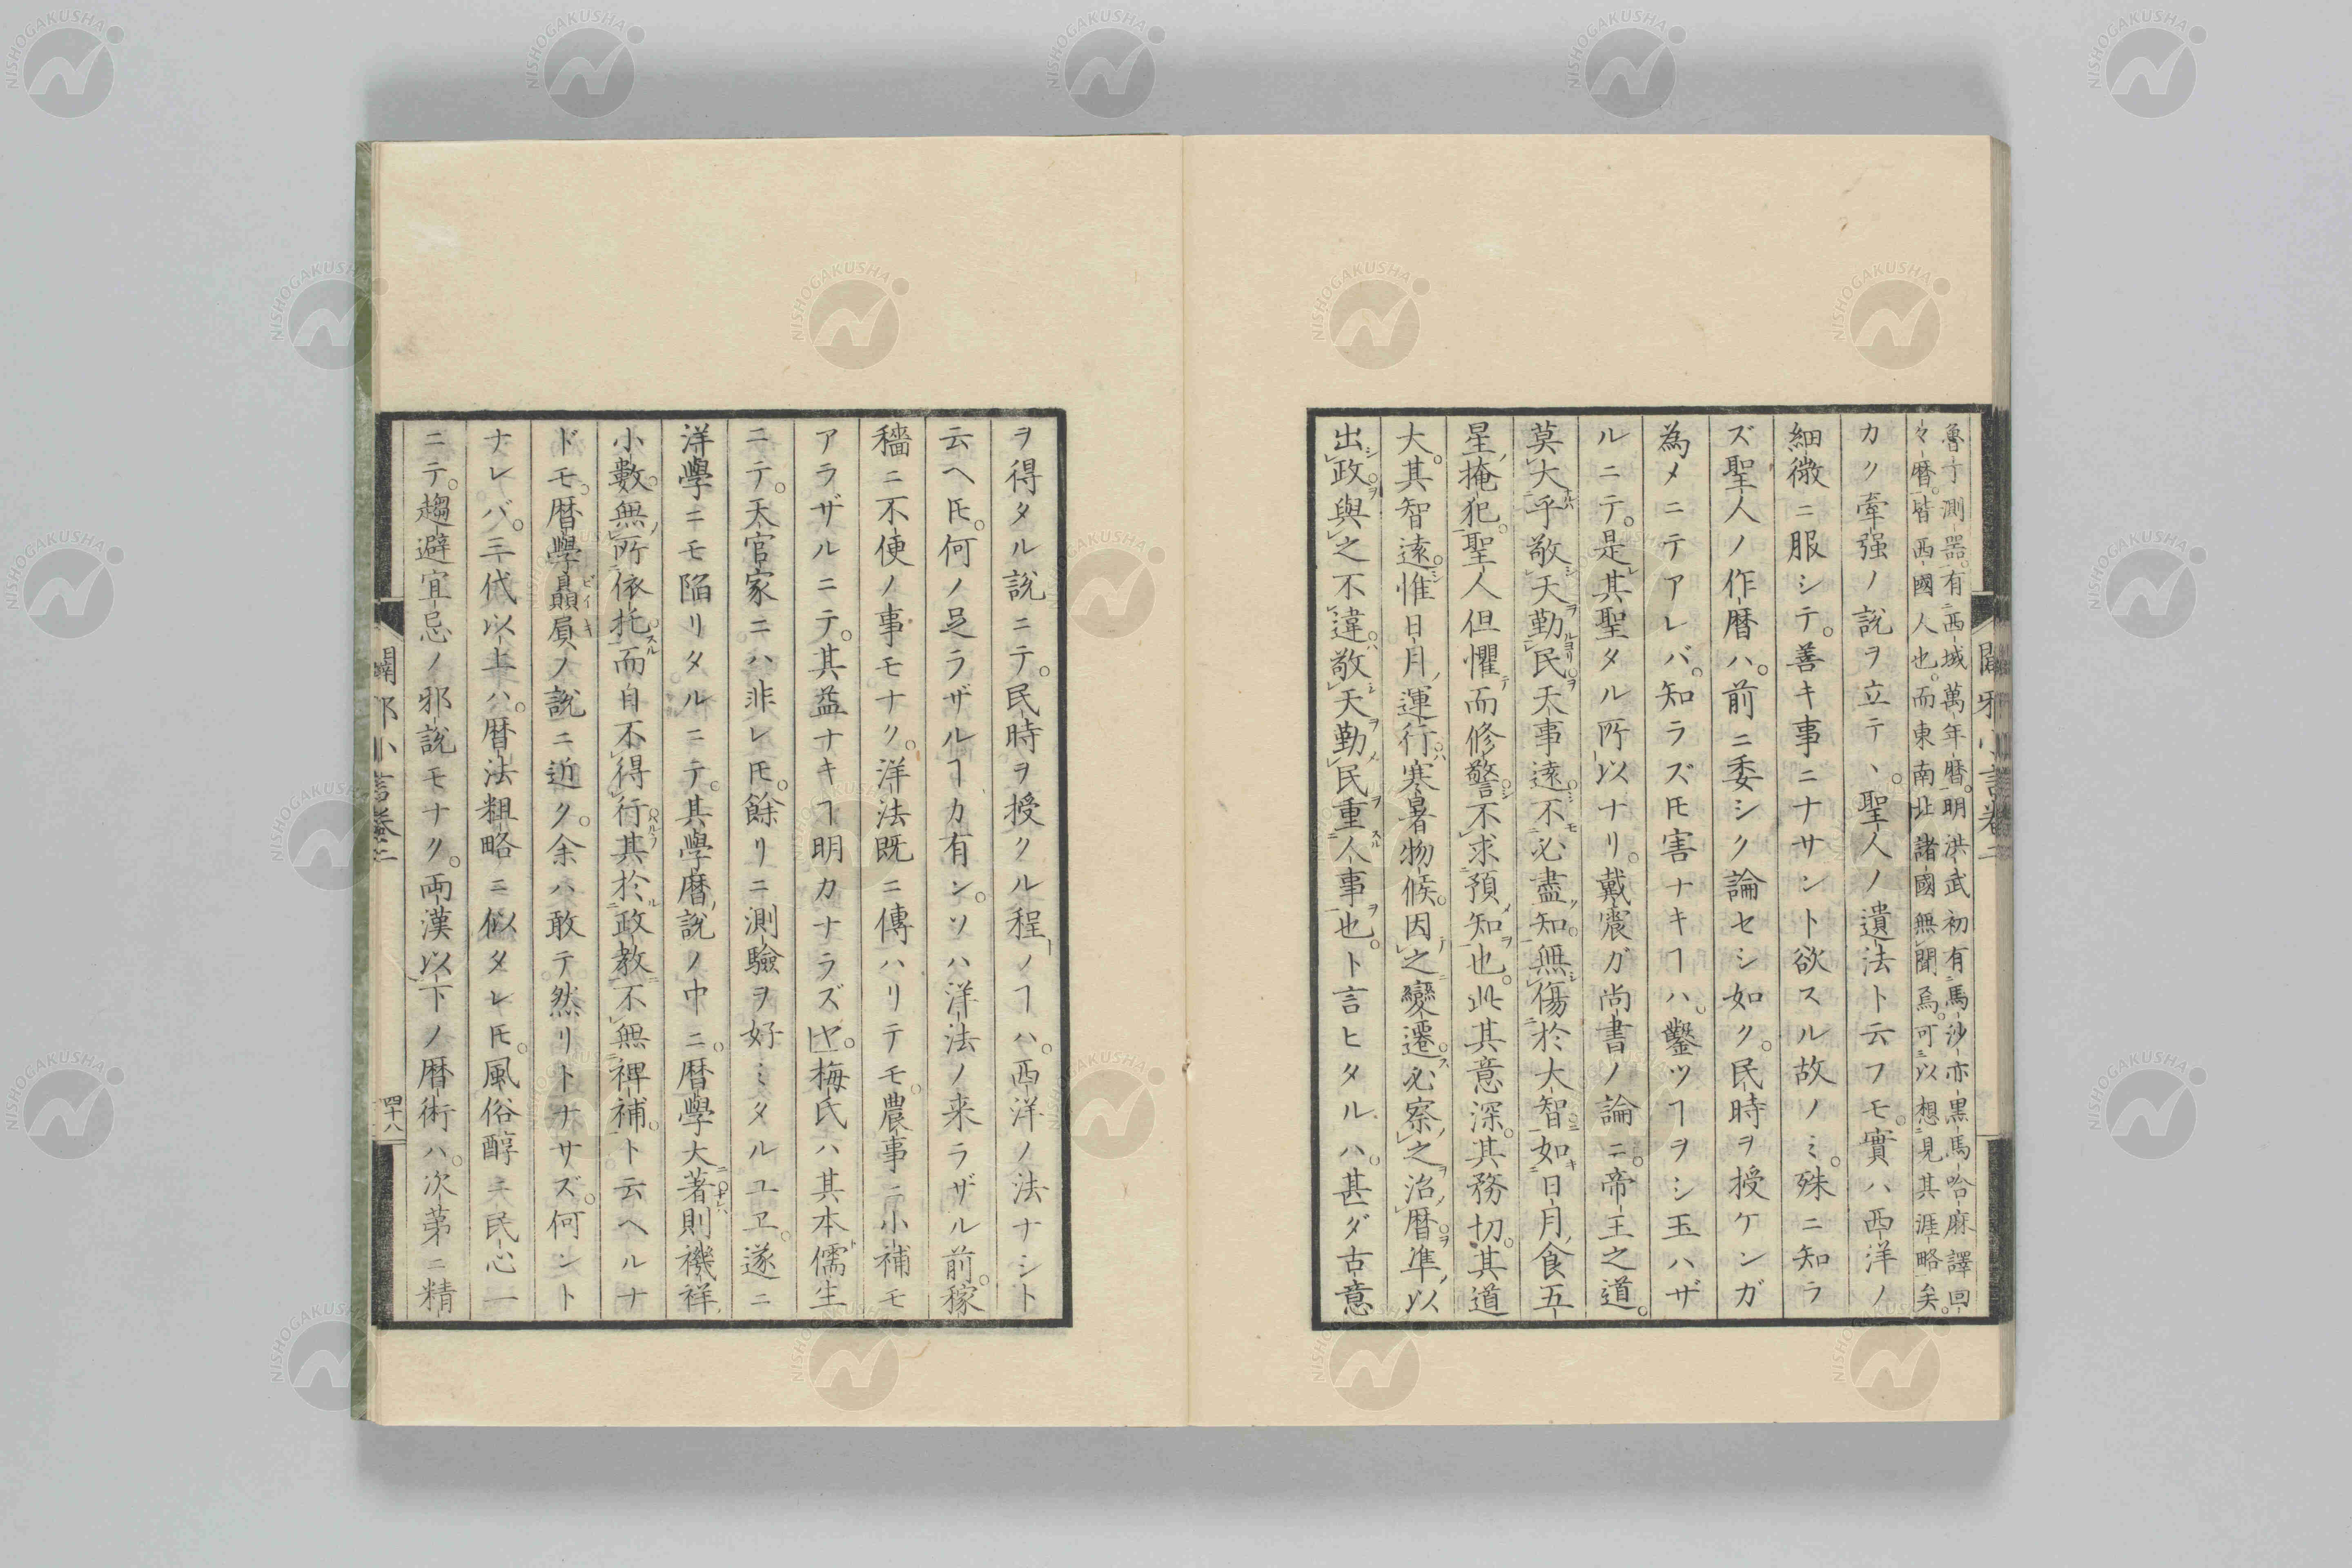 魯丁測器。有西域萬年暦。明洪武初有馬沙亦黒馬哈麻譯回
々暦。皆西國人也。而東南北諸國無聞焉。可以想見其涯略矣。
カク牽强ノ説ヲ立テヽ。聖人ノ遺法ト云フモ。實ハ西洋ノ
細微ニ服シテ。善キ事ニナサント欲スル故ノミ。殊ニ知ラ
ズ聖人ノ作暦ハ。前ニ委シク論セシ如ク。民時ヲ授ケンガ
為メニテアレバ。知ラズ𪜈害ナキヿハ。鑿ツヿヲシ玉ハザ
ルニテ。是其聖タル所以ナリ。戴震ガ尚書ノ論ニ。帝王之道。
莫大乎敬天勤民。天事遠不必盡知。無傷於大智。如日月食五
星掩犯。聖人但懼而修警。不求預知也。此其意深。其務切。其道
大。其智遠。惟日月運行。寒暑物候。因之變遷。必察之治暦準以
出政。與之不違。敬天勤民重人事也。ト言ヒタルハ。甚ダ古意
ヲ得タル説ニテ。民時ヲ授クル程ノヿハ。西洋ノ法ナシト
云ヘ𪜈。何ノ足ラザルヿカ有ン。ソハ洋法ノ来ラザル前。稼
穡ニ不便ノ事モナク。洋法既ニ傳ハリテモ。農事ニ小補モ
アラザルニテ。其益ナキヿ明カナラズヤ。梅氏ハ其本儒生
ニテ。天官家ニハ非レ𪜈。餘リニ測驗ヲ好ミタルユヱ。遂ニ
洋學ニモ陥リタルニテ。其學暦説ノ中ニ。暦學大著則禨祥
小數。無所依托而自不得行其於政教不無裨補。ト云ヘルナ
ドモ。暦學贔屓ノ説ニ近ク。余ハ敢テ然リトナサズ。何ント
ナレバ。三代以上ハ。暦法粗略ニ似タレ𪜈。風俗醇ニ民心一
ニテ。趨避宜忌ノ邪説モナク。両漢以下ノ暦術ハ。次第ニ精
闢邪小言卷二
四十八
NISHOGAKUSHA